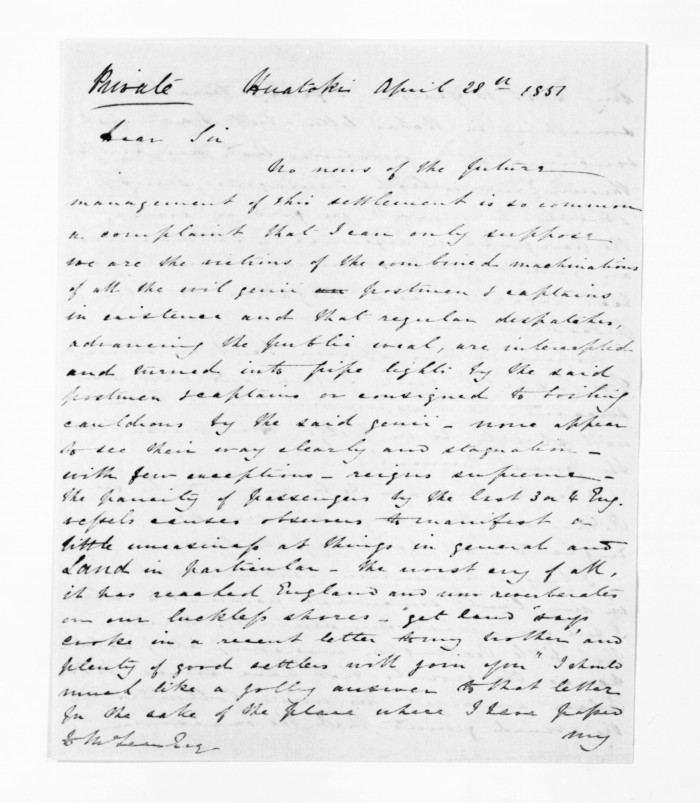 Private Huatoki April 28th 1851
Dear Sir
No news of the future
management of this settlement is so common
a complaint that I can only suppose
we are the victims of the combined machinations
of all the evil genii postmen & captains
in existence and that regular despatches,
advancing the public weal, are intercepted
and turned into pipe lights by the said
postmen & captains or consigned to boiling
cauldrons by the said genii - none appear
to see their way clearly and stagnation -
with few exceptions - reigns supreme -
the paucity of passengers by the last 3 or 4 Eng.
vessels causes observers to manifest a
little uneasiness at things in general and
Land in particular - the worst cry of all,
it has reached England and now reverberates
on our luckless shores - "get land" says
Cooke in a recent letter to my brother "and
plenty of good settlers will join you" I should
much like a jolly answer to that letter
for the sake of the place where I have passed
my
D McLean Esq